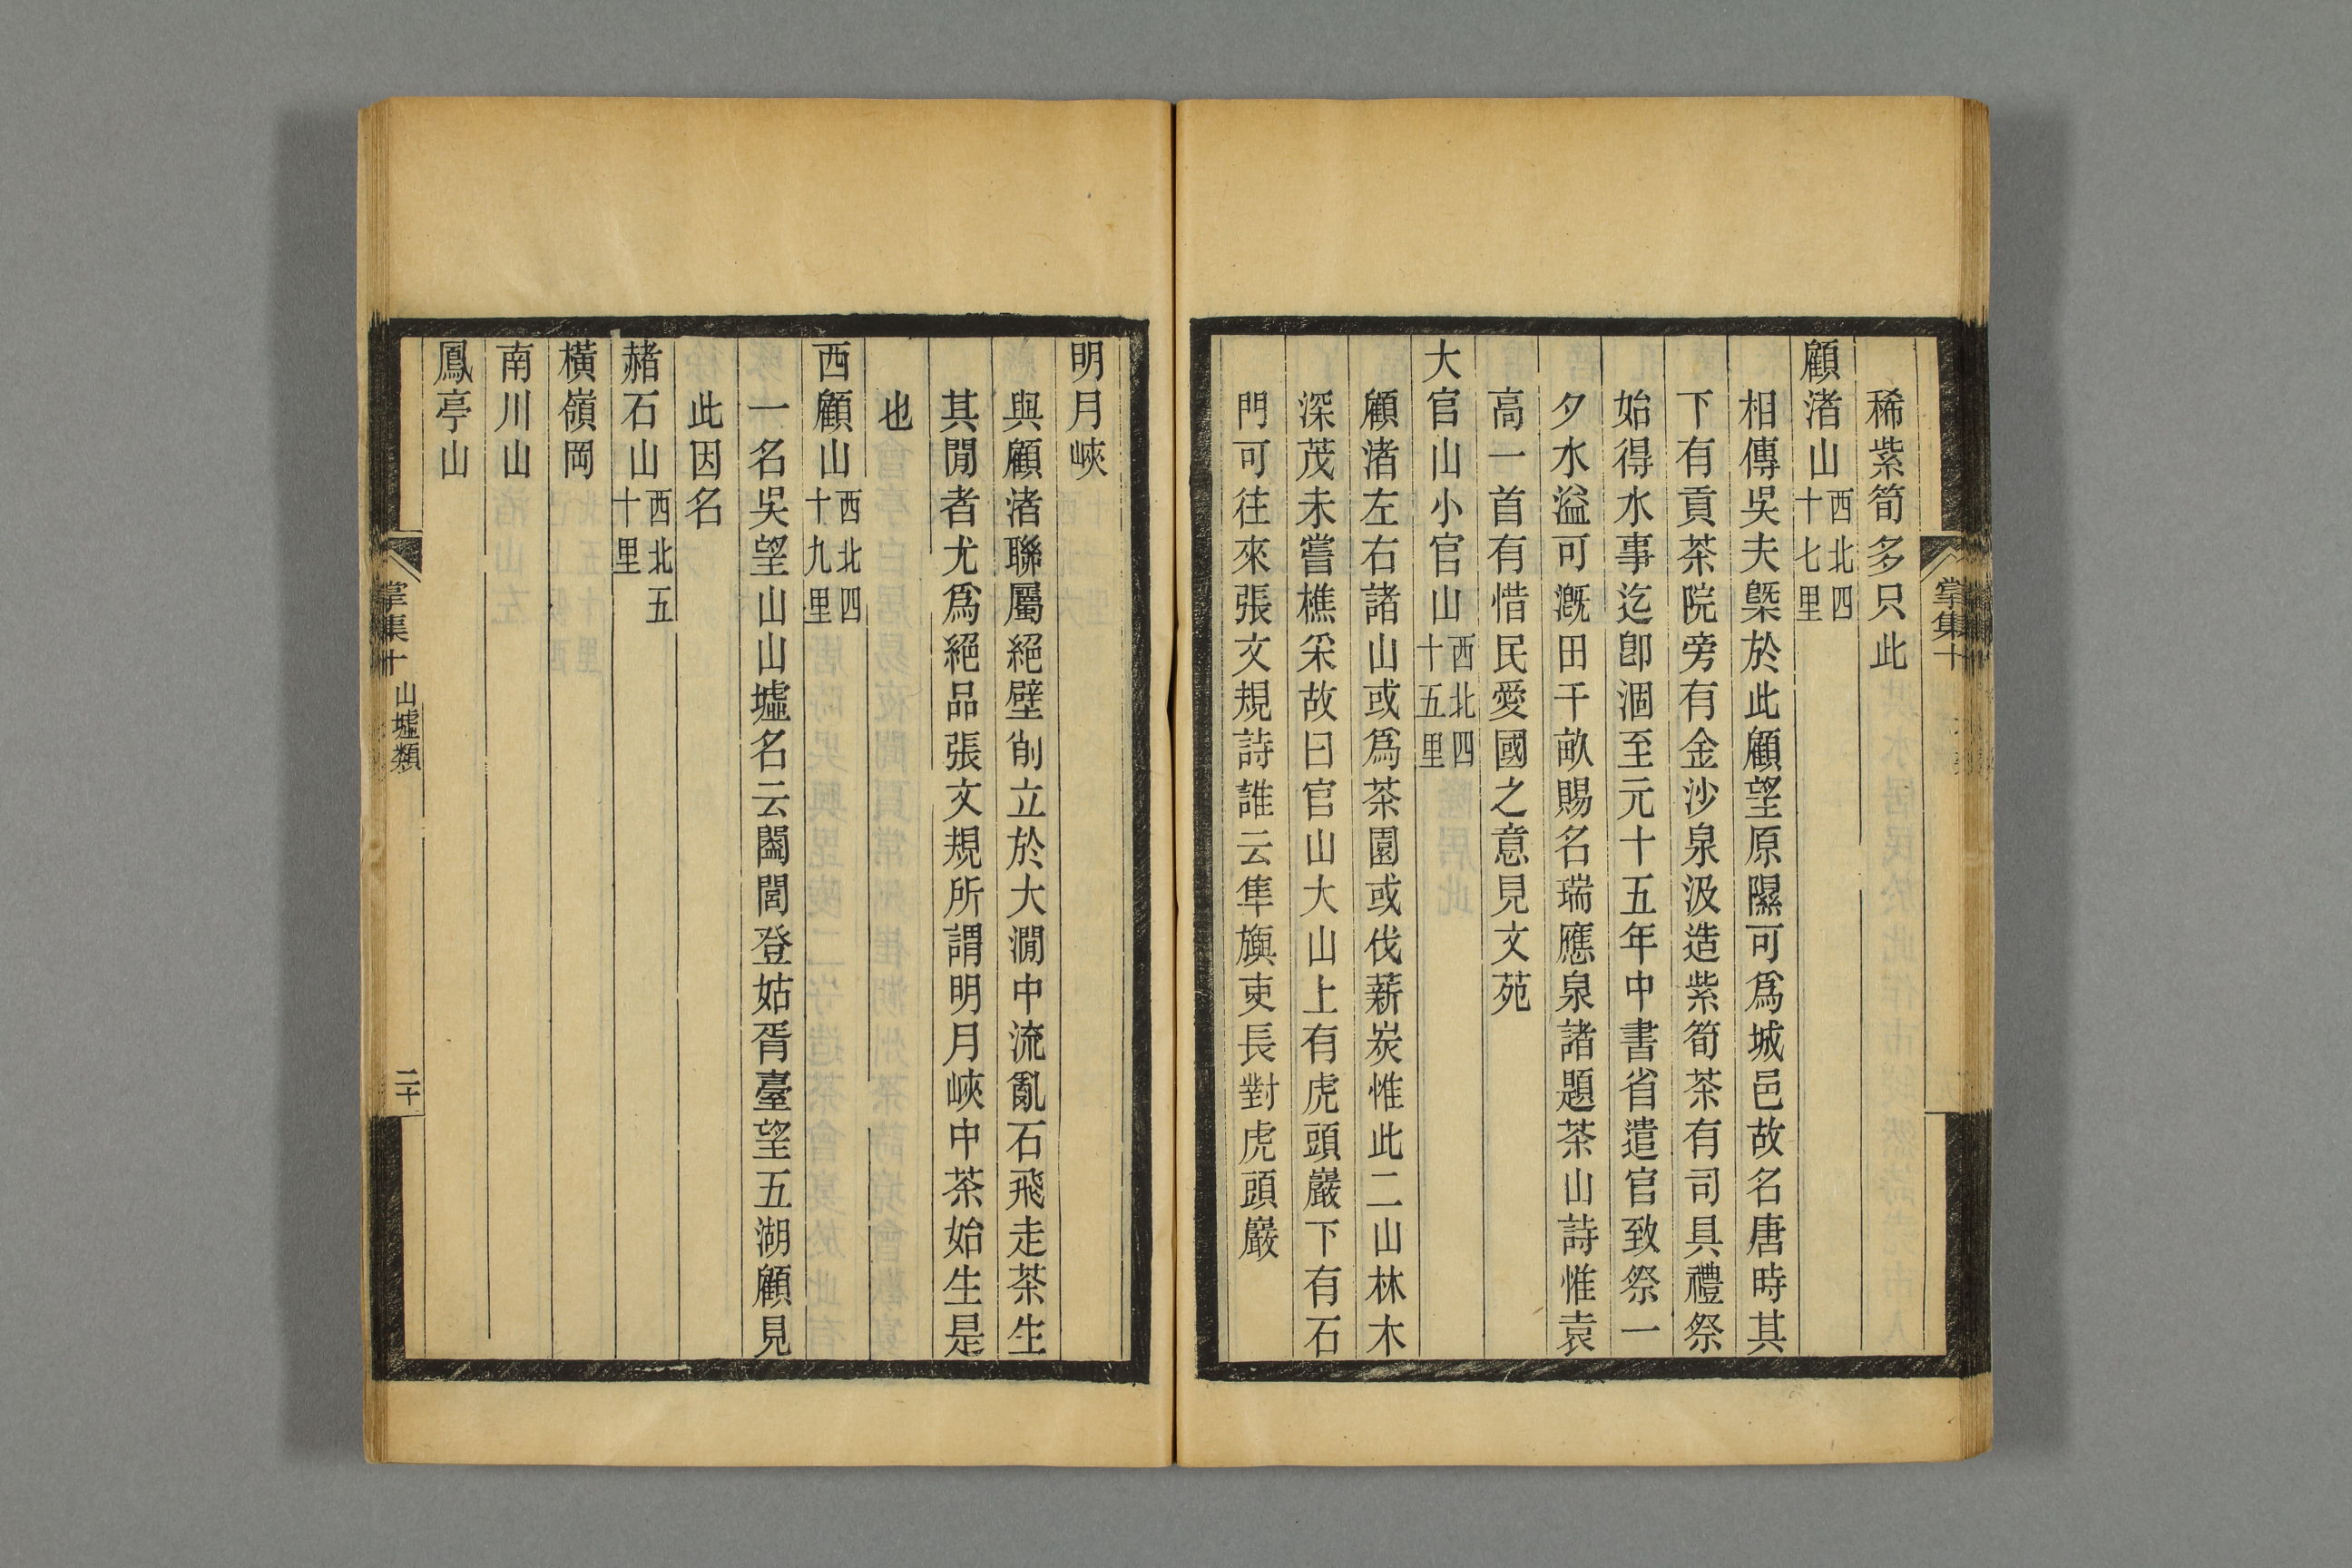 稀紫筍多只此
顧渚山西北四十七里
相傳吳夫槩於此顧望原隰可爲城邑故名唐時其
下有貢茶院旁有金沙泉汲造紫筍茶有司具禮祭
始得水事迄卽涸至元十五年中書省遣官致祭一
夕水溢可漑田千畝賜名瑞應泉諸題茶山詩惟袁
高一首有惜民愛國之意見文苑
大官山小官山西北四十五里
顧渚左右諸山或爲茶園或伐薪炭惟此二山林木
深茂未嘗樵采故曰官山大山上有虎頭巖下有石
門可往來張文規詩誰云隼旟吏長對虎頭巖
掌集十
明月峽
與顧渚聯屬絕壁削立於大澗中流亂石飛走茶生
其閒者尤爲絕品張文規所謂明月峽中茶始生是
也
西顧山西北四十九里
一名吳望山山墟名云闔閭登姑胥臺望五湖顧見
此因名
赭石山西北五十里
橫嶺岡
南川山
鳳亭山
掌集十 山墟類 二十